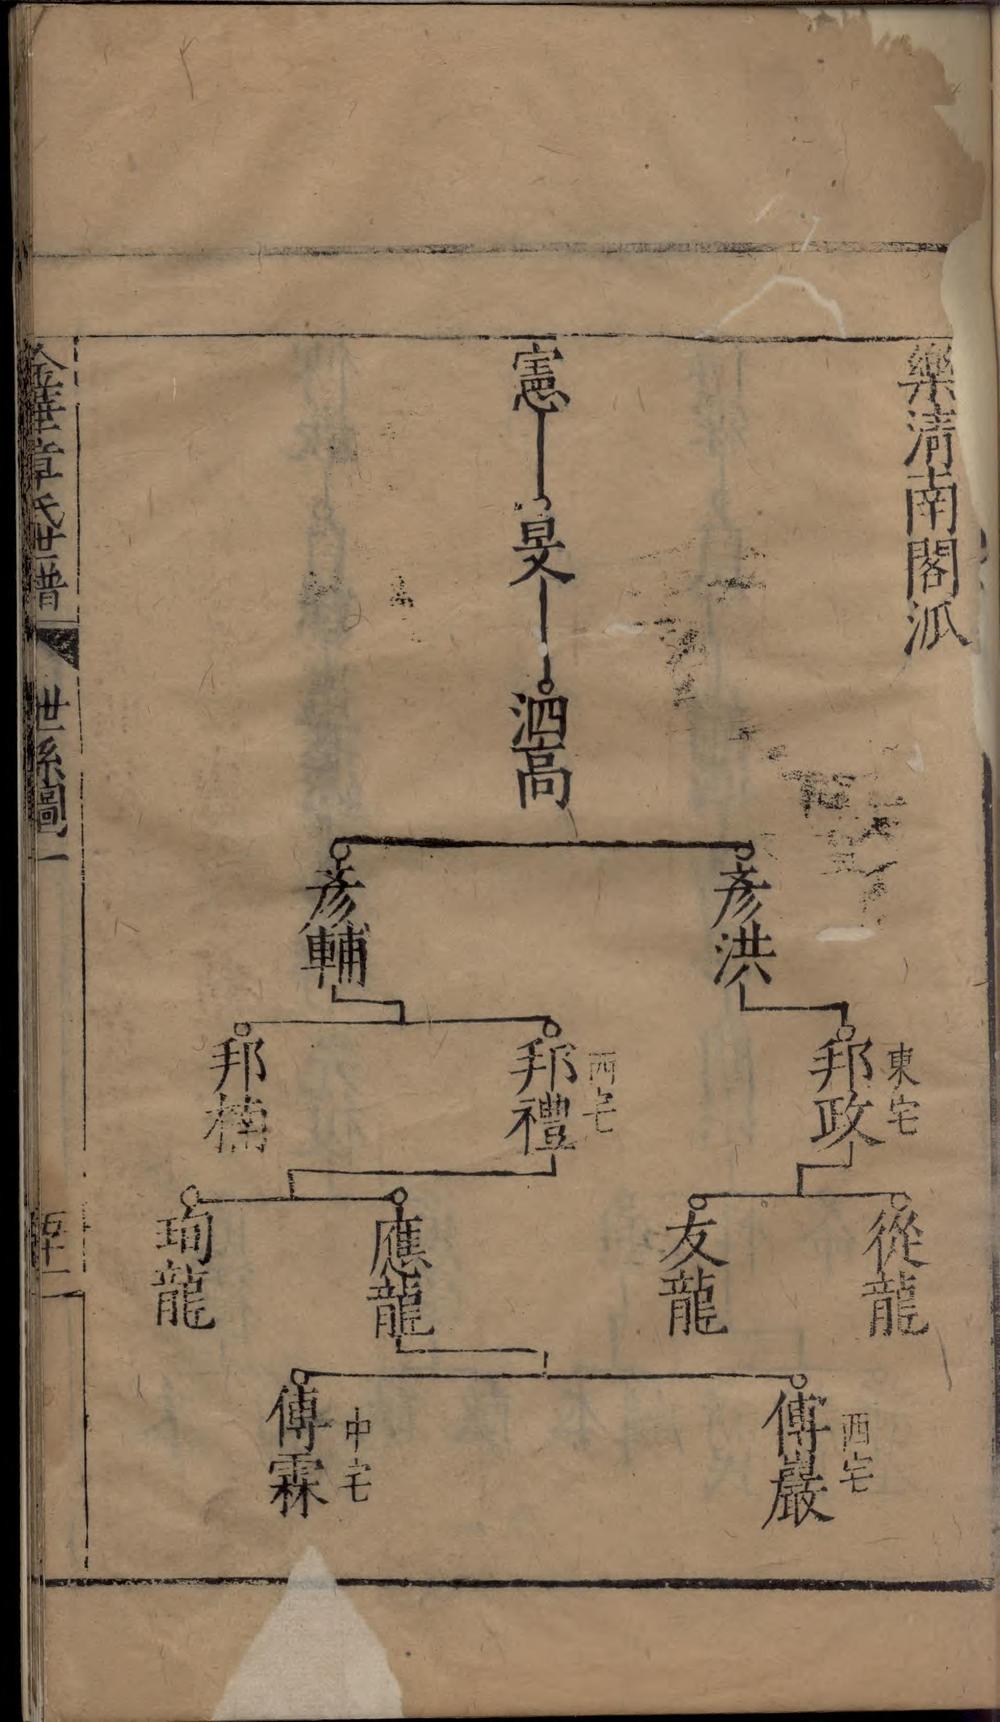 樂淸南閣派
憲
旻
泗高
彥洪
彥輔
東宅
邦政
西宅
邦禮
邦楠
從龍
友龍
應龍
珣龍
西宅
傅巖
中宅
傅霖
金華章氏世譜
世系圖一